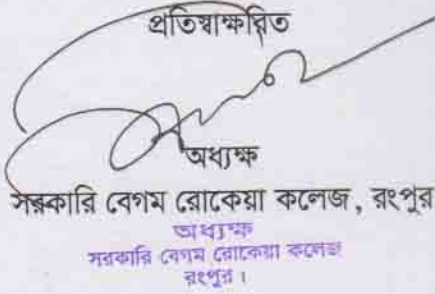 প্রতিস্বাক্ষরিত
অধ্যক্ষ
সরকারি বেগম রোকেয়া কলেজ, রংপুর
অধ্যক্ষ
সরকারি বেগম রোকেয়া কলেজ
রংপুর।